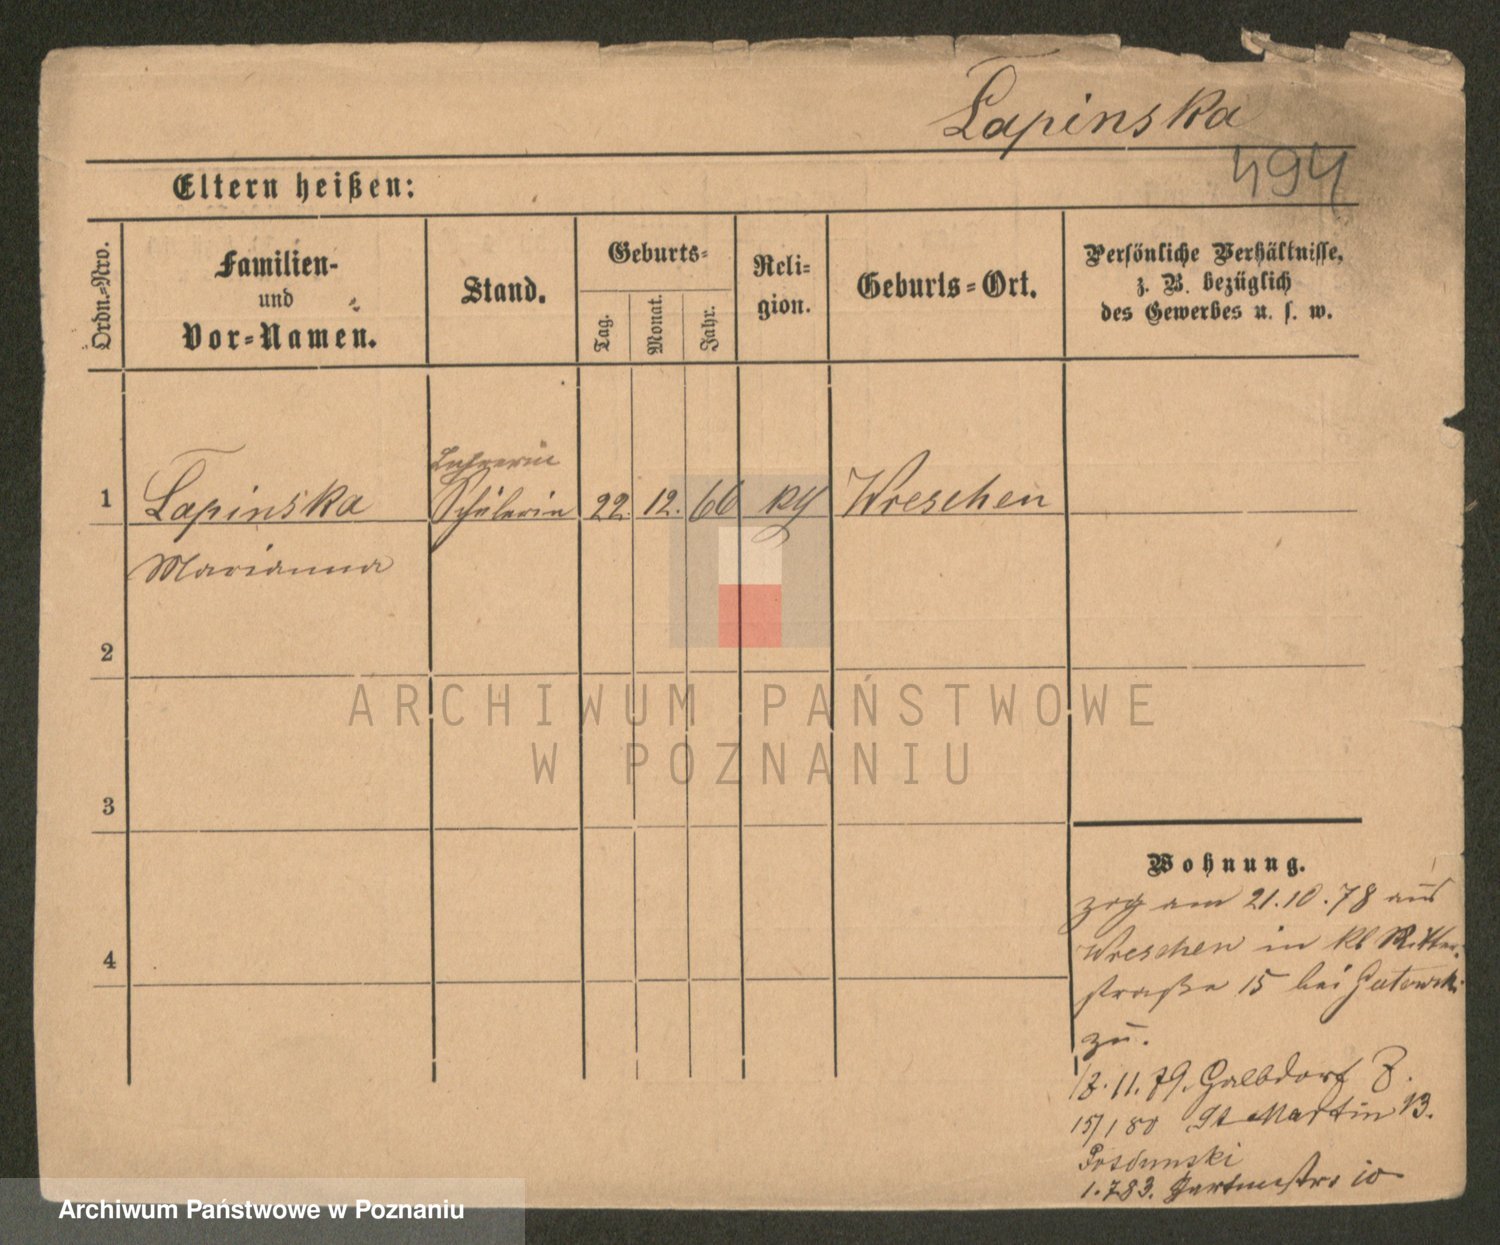 Lapinska
494
Eltern heißen:
Ordn.-Nro.
Familien-
und
Vor-Namen.
Stand.
Geburts-
Tag.
Monat.
Jahr.
Reli-
gion.
Geburts-Ort.
Persönliche Verhältnisse,
z. B. bezüglich
des Gewerbes u. s. w.
Lehrerin
1 Lapinska Schülerin 22. 12. 66 Wreschen
Marianna
2
3
4
Wohnung.
zog am 21.10.78 aus
Wreschen in kl Ritter-
straße 15 bei Gutowski
zu.
13.11.79. Halbdorf 8.
15/1 80 St Martin 13.
1.7 83. Gartenstr. 10
ARCHIWUM PAŃSTWOWE
W POZNANIU
Archiwum Państwowe w Poznaniu